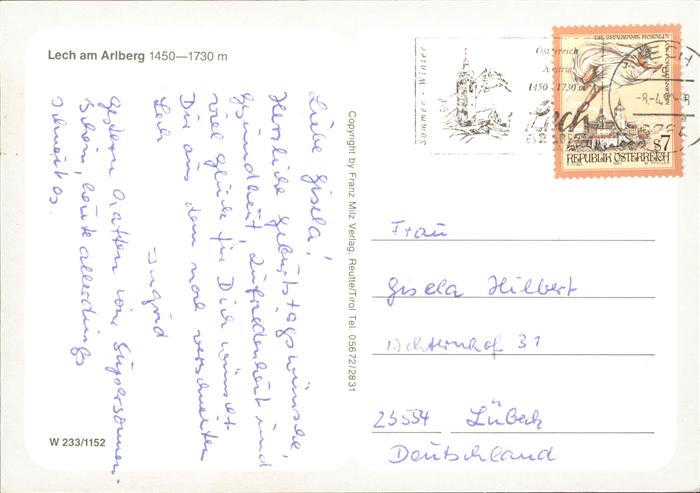 Lech am Arlberg 1450—1730 m
Liebe Gisela!
Herzliche Geburtstagswünsche,
Gesundheit, Zufriedenheit und
viel Glück für Dich wünscht
Dir aus dem noch verschneiten
Lech
Ingrid
Gestern hatten wir Supersonnen-
schein, heute allerdings
schneit es.
W 233/1152
Copyright by Franz Milz Verlag, Reutte/Tirol Tel. 05672/2831
Sommer - Winter
Österreich
Austria
1450-1730 m
Lech
LECH
6764
DIE GRAUSAME ROSALIA
S7
REPUBLIK ÖSTERREICH
Frau
Gisela Hilbert
Achternhof 31
23554 Lübeck
Deutschland